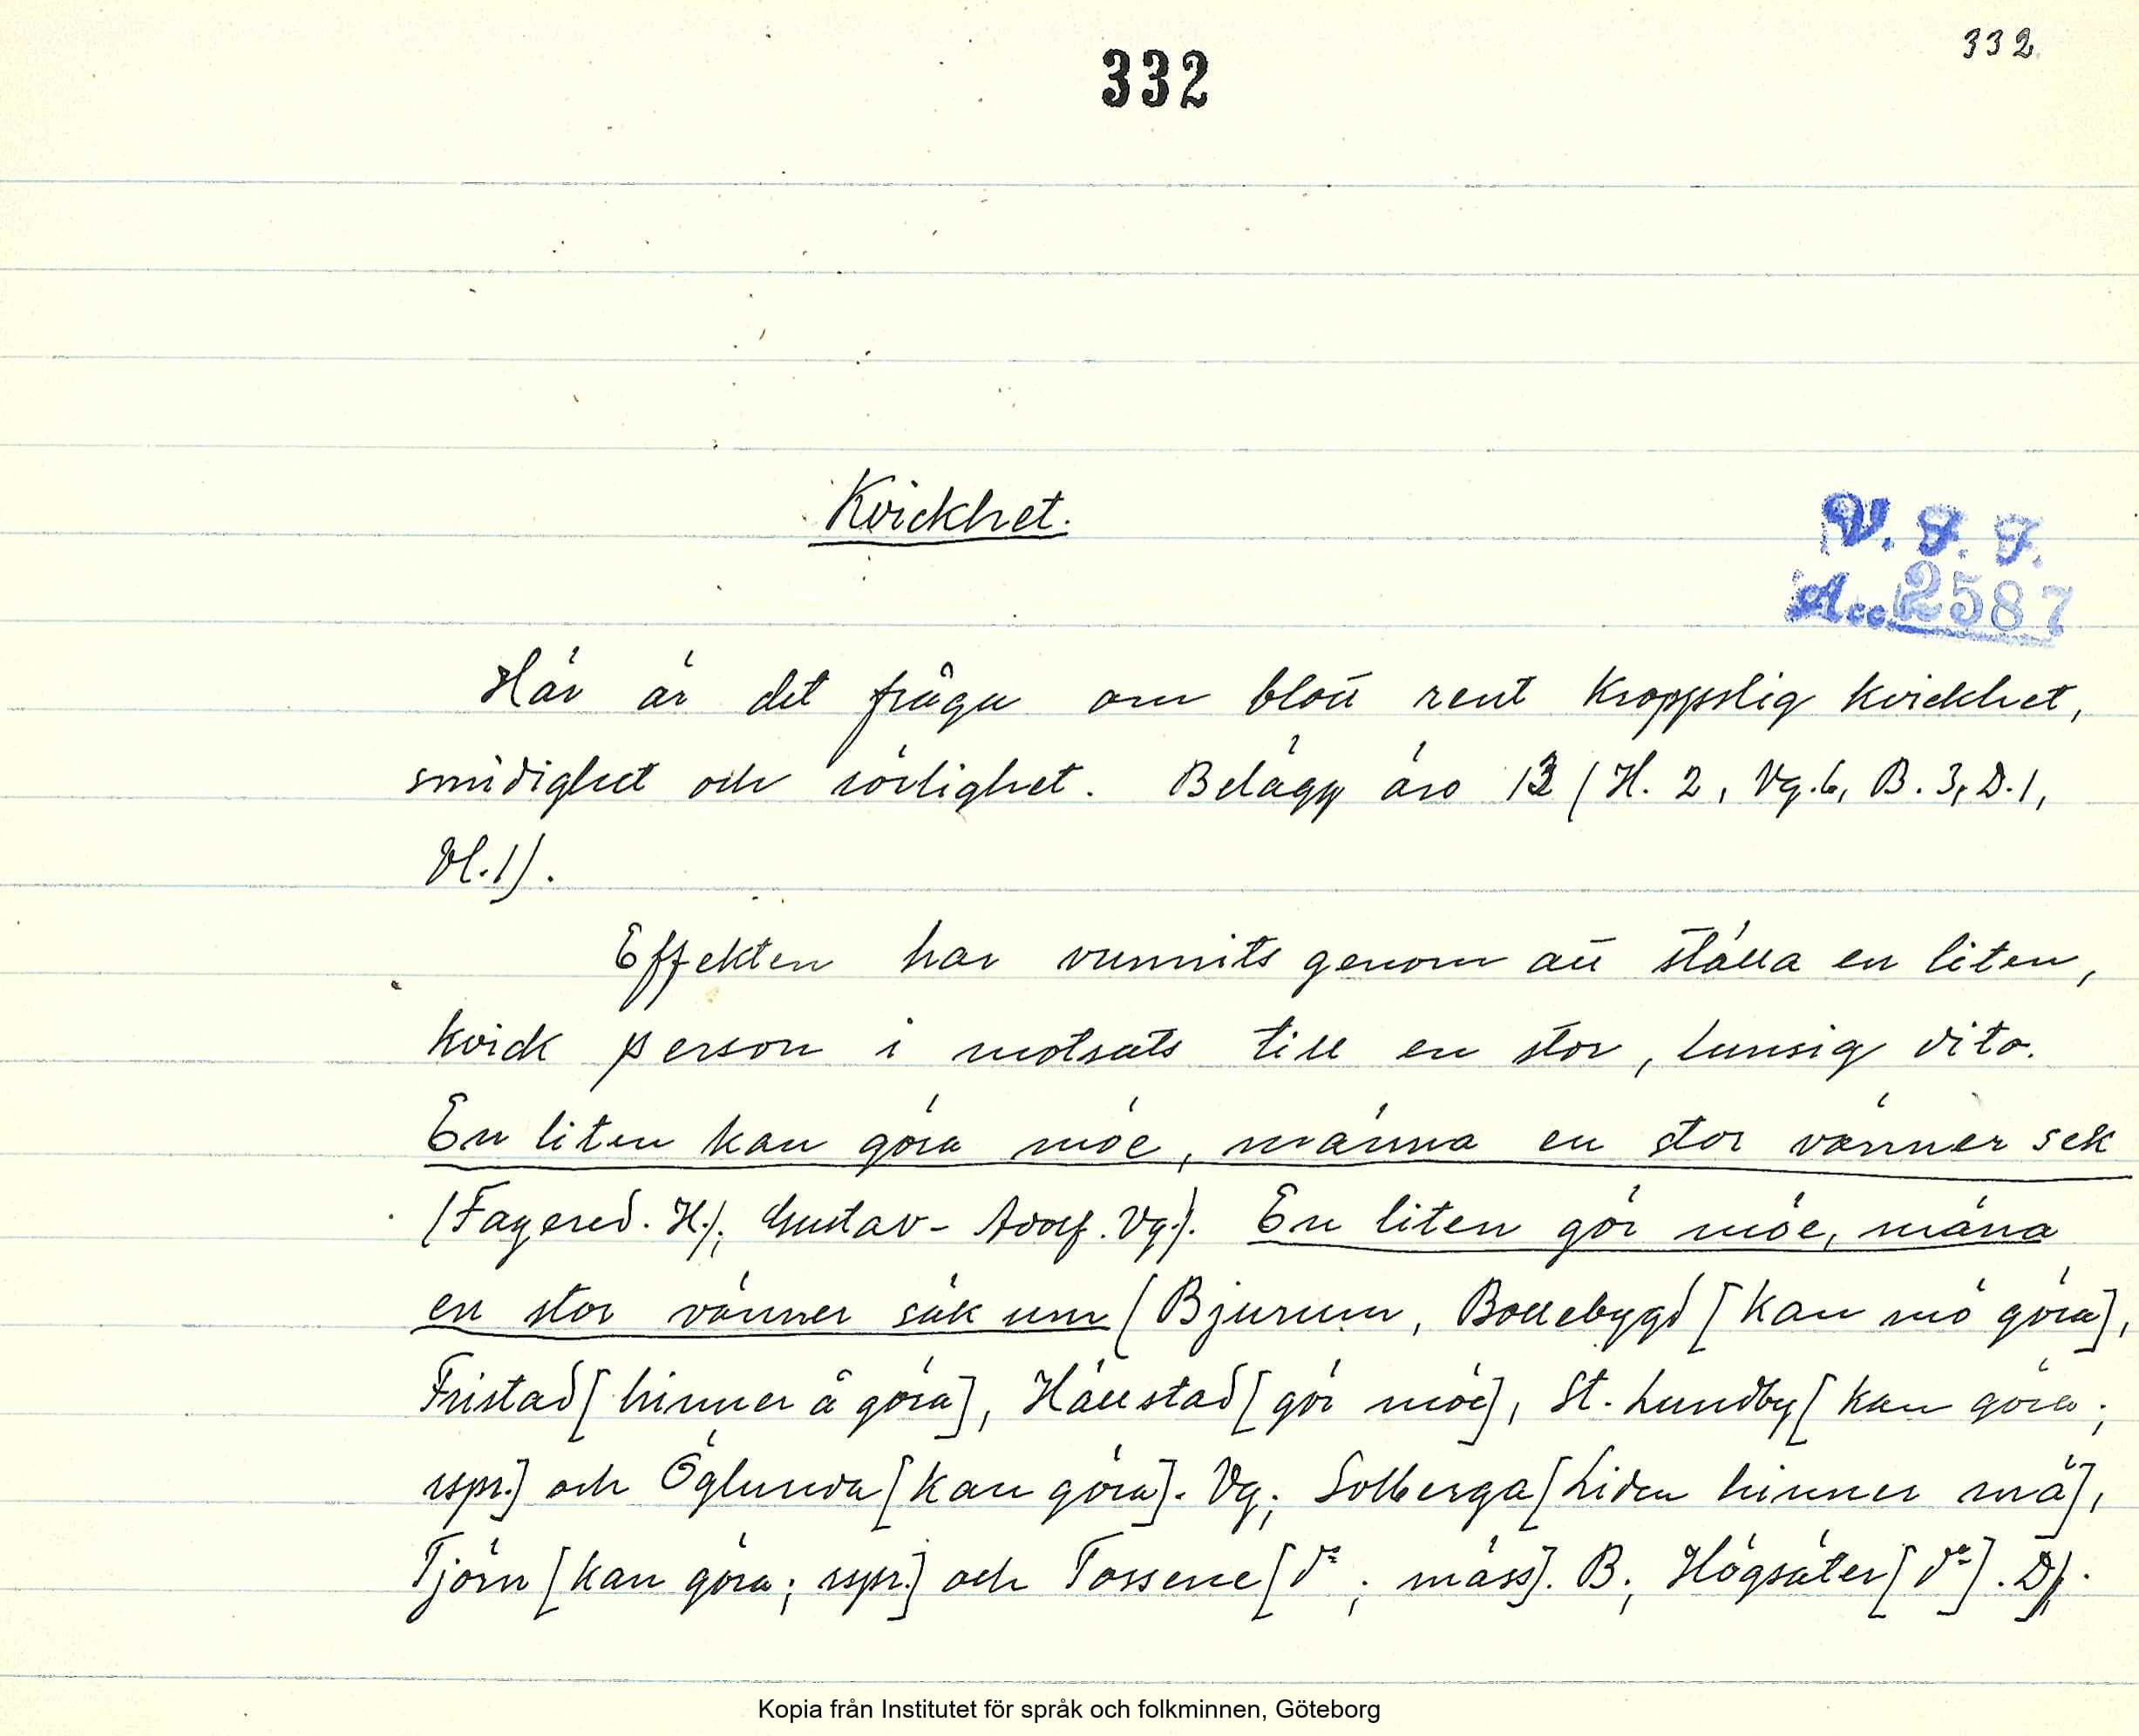 332
332
Kvickhet.
V. F. F.
Acc. 2587
Här är det fråga om blott rent kroppslig kvickhet,
smidighet och rörlighet. Belägg äro 13 (H. 2, Vg. 6, B. 3, D. 1,
Vl. 1).
Effekten har vunnits genom att ställa en liten,
kvick person i motsats till en stor, lunsig dito.
En liten kan göra möe, männa en stor vänner sek
(Fagered. H.; Gustav-Adolf. Vg.). En liten gör möe, mäna
en stor vänner säk um (Bjurum, Bollebygd [kan mö göra],
Fristad [hinner å göra], Hällstad [gör möe], St. Lundby [kan göra;
rspr.] och Öglunda [kan göra]. Vg.; Solberga [Liden hinner mä],
Tjörn [kan göra; rspr.] och Tossene [d:o; mäss]. B.; Högsäter [d:o]. D.).
Kopia från Institutet för språk och folkminnen, Göteborg